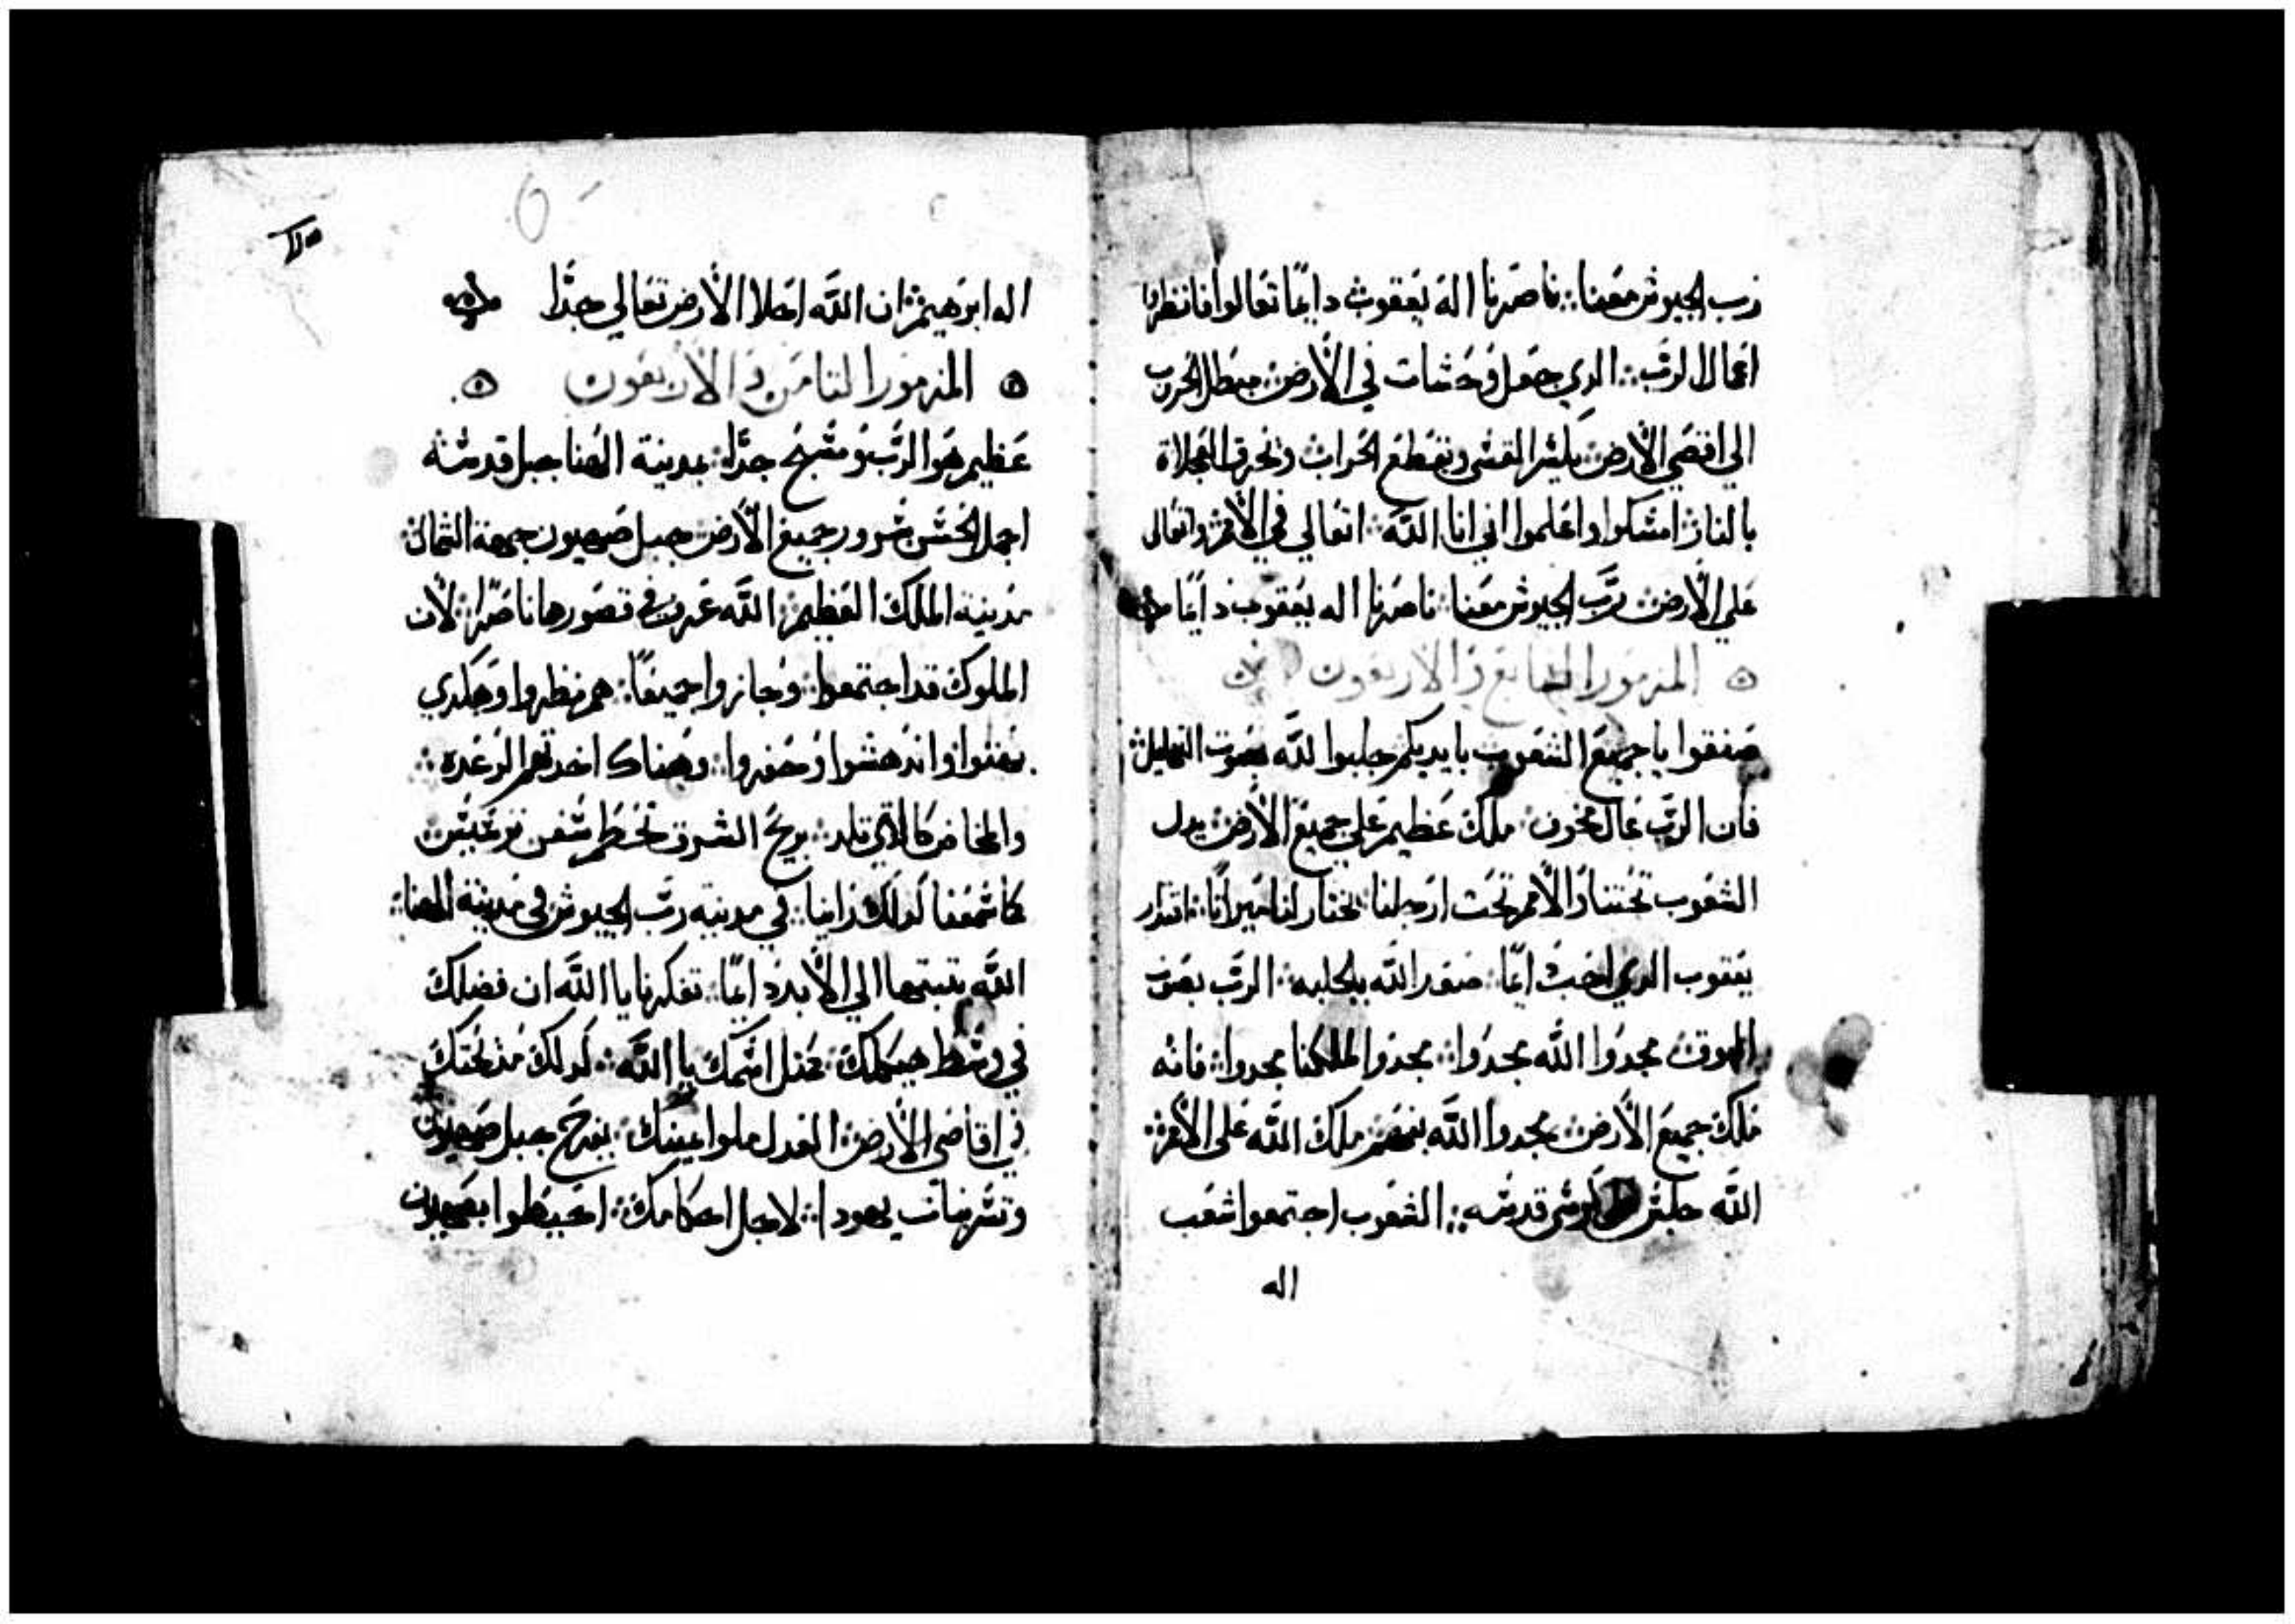 رب الجيوش معنا ناصرنا اله يعقوب دايمًا تعالوا فانظروا
اعمال الرب الدي جعل وحشات في الأرض مبطل الحروب
الي اقصي الأرض يكسر القسي ويقطع الحراب وتحرق العجلاة
بالنار امسكوا واعلموا اني انا الله اتعالي في الأمم واتعالى
علي الأرض رب الجيوش معنا ناصرنا اله يعقوب دايمًا
المزمور السابع و الاربعون
صفقوا يا جميع الشعوب بايديكم جلبوا لله بصوت التهليل
فان الرب عال مخوف ملك عظيم علي جميع الأرض يدل
الشعوب تحتنا والأمم تحت ارجلنا يختار لنا ميراثا اقتدار
يعقوب الدي احب دايمًا صعد الله بالجلبه الرب بصوت
البوق مجدوا الله مجدوا مجدوا لملكنا مجدوا فانه
ملك جميع الأرض مجدوا الله بفهم ملك الله على الأمم
الله جلس كرسي قدسه الشعوب اجتمعوا شعب
اله
اله ابرهيم ان الله اعلا الأرض تعالي جدًا
المزمور الثامن و الأربعون
عظيم هو الرب ومسبح جدًا بمدينة الهنا جبل قدسه
اجمل الحسن سرور جميع الأرض جبل صهيون جهة الشمال
مدينة الملك العظيم الله عرف في قصورها ناصرا لأن
الملوك قد اجتمعوا وجازوا جميعًا هم نظروا وهكدي
بهتوا واندهشوا وحفروا وهناك اخدتهم الرعده
والمخاض كالاتي تلد بريح الشرق تحطم سفن ترعيس
كما سمعنا كدلك راينا في مدينه رب الجيوش في مدينة الهنا
الله يتبتها الي الأبد دايمًا تفكرنا يا الله ان فضلك
في وسط هيكلك مثل اسمك يا الله كدلك مدحتك
في اقاصي الأرض العدل ملوا يمينك يفرح جبل صهيون
وتسر بنات يهودا لاجل احكامك احيطوا بصهيون